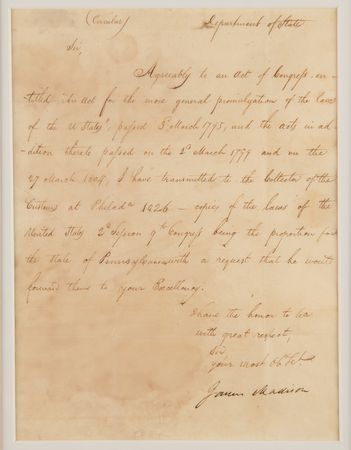 (Circular) Department of State
Sir,
Agreeably to an Act of Congress en-
-titled "An Act for the more general promulgation of the laws
of the U States", passed 3d March 1795, and the acts in ad-
-dition thereto passed on the 2d March 1799 and on the
27 March 1804, I have transmitted to the Collector of the
Customs at Philada 1426 – copies of the laws of the
United States 2d Session 9th Congress being the proportion for
the State of Pennsylvania with a request that he would
forward them to your Excellency.
I have the honor to be
with great respect,
Sir,
your most Obt
James Madison